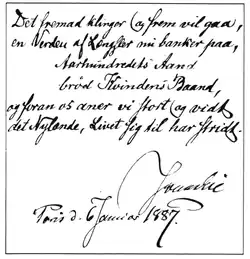 Det fremad klinger (og frem vil gaa,
en Verden af Længsler mi banker paa,
Aarhundredets Aand
brød Kvindens Baand,
og foran os aner vi stort (og vidt
det Nylænde, Livet sig til har stridt.
Paris d. 6 Januar 1887.